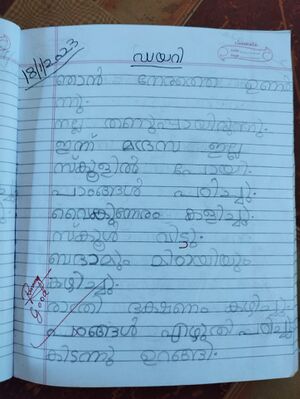 ഡയറി
18/1/2023
ഞാൻ നേരത്തെ ഉണർ
ന്നു.
നല്ല തണുപ്പായിരുന്നു.
ഇന്ന് മദ്രസ ഇല്ല
സ്കൂളിൽ പോയി.
പാഠങ്ങൾ പഠിച്ചു.
വൈകുന്നേരം കളിച്ചു.
സ്കൂൾ വിട്ടു.
ബദാമും മിഠായിയും
കഴിച്ചു.
രാത്രി ഭക്ഷണം കഴിച്ചു.
പാഠങ്ങൾ എഴുതി പഠിച്ചു.
കിടന്നു ഉറങ്ങി.
good